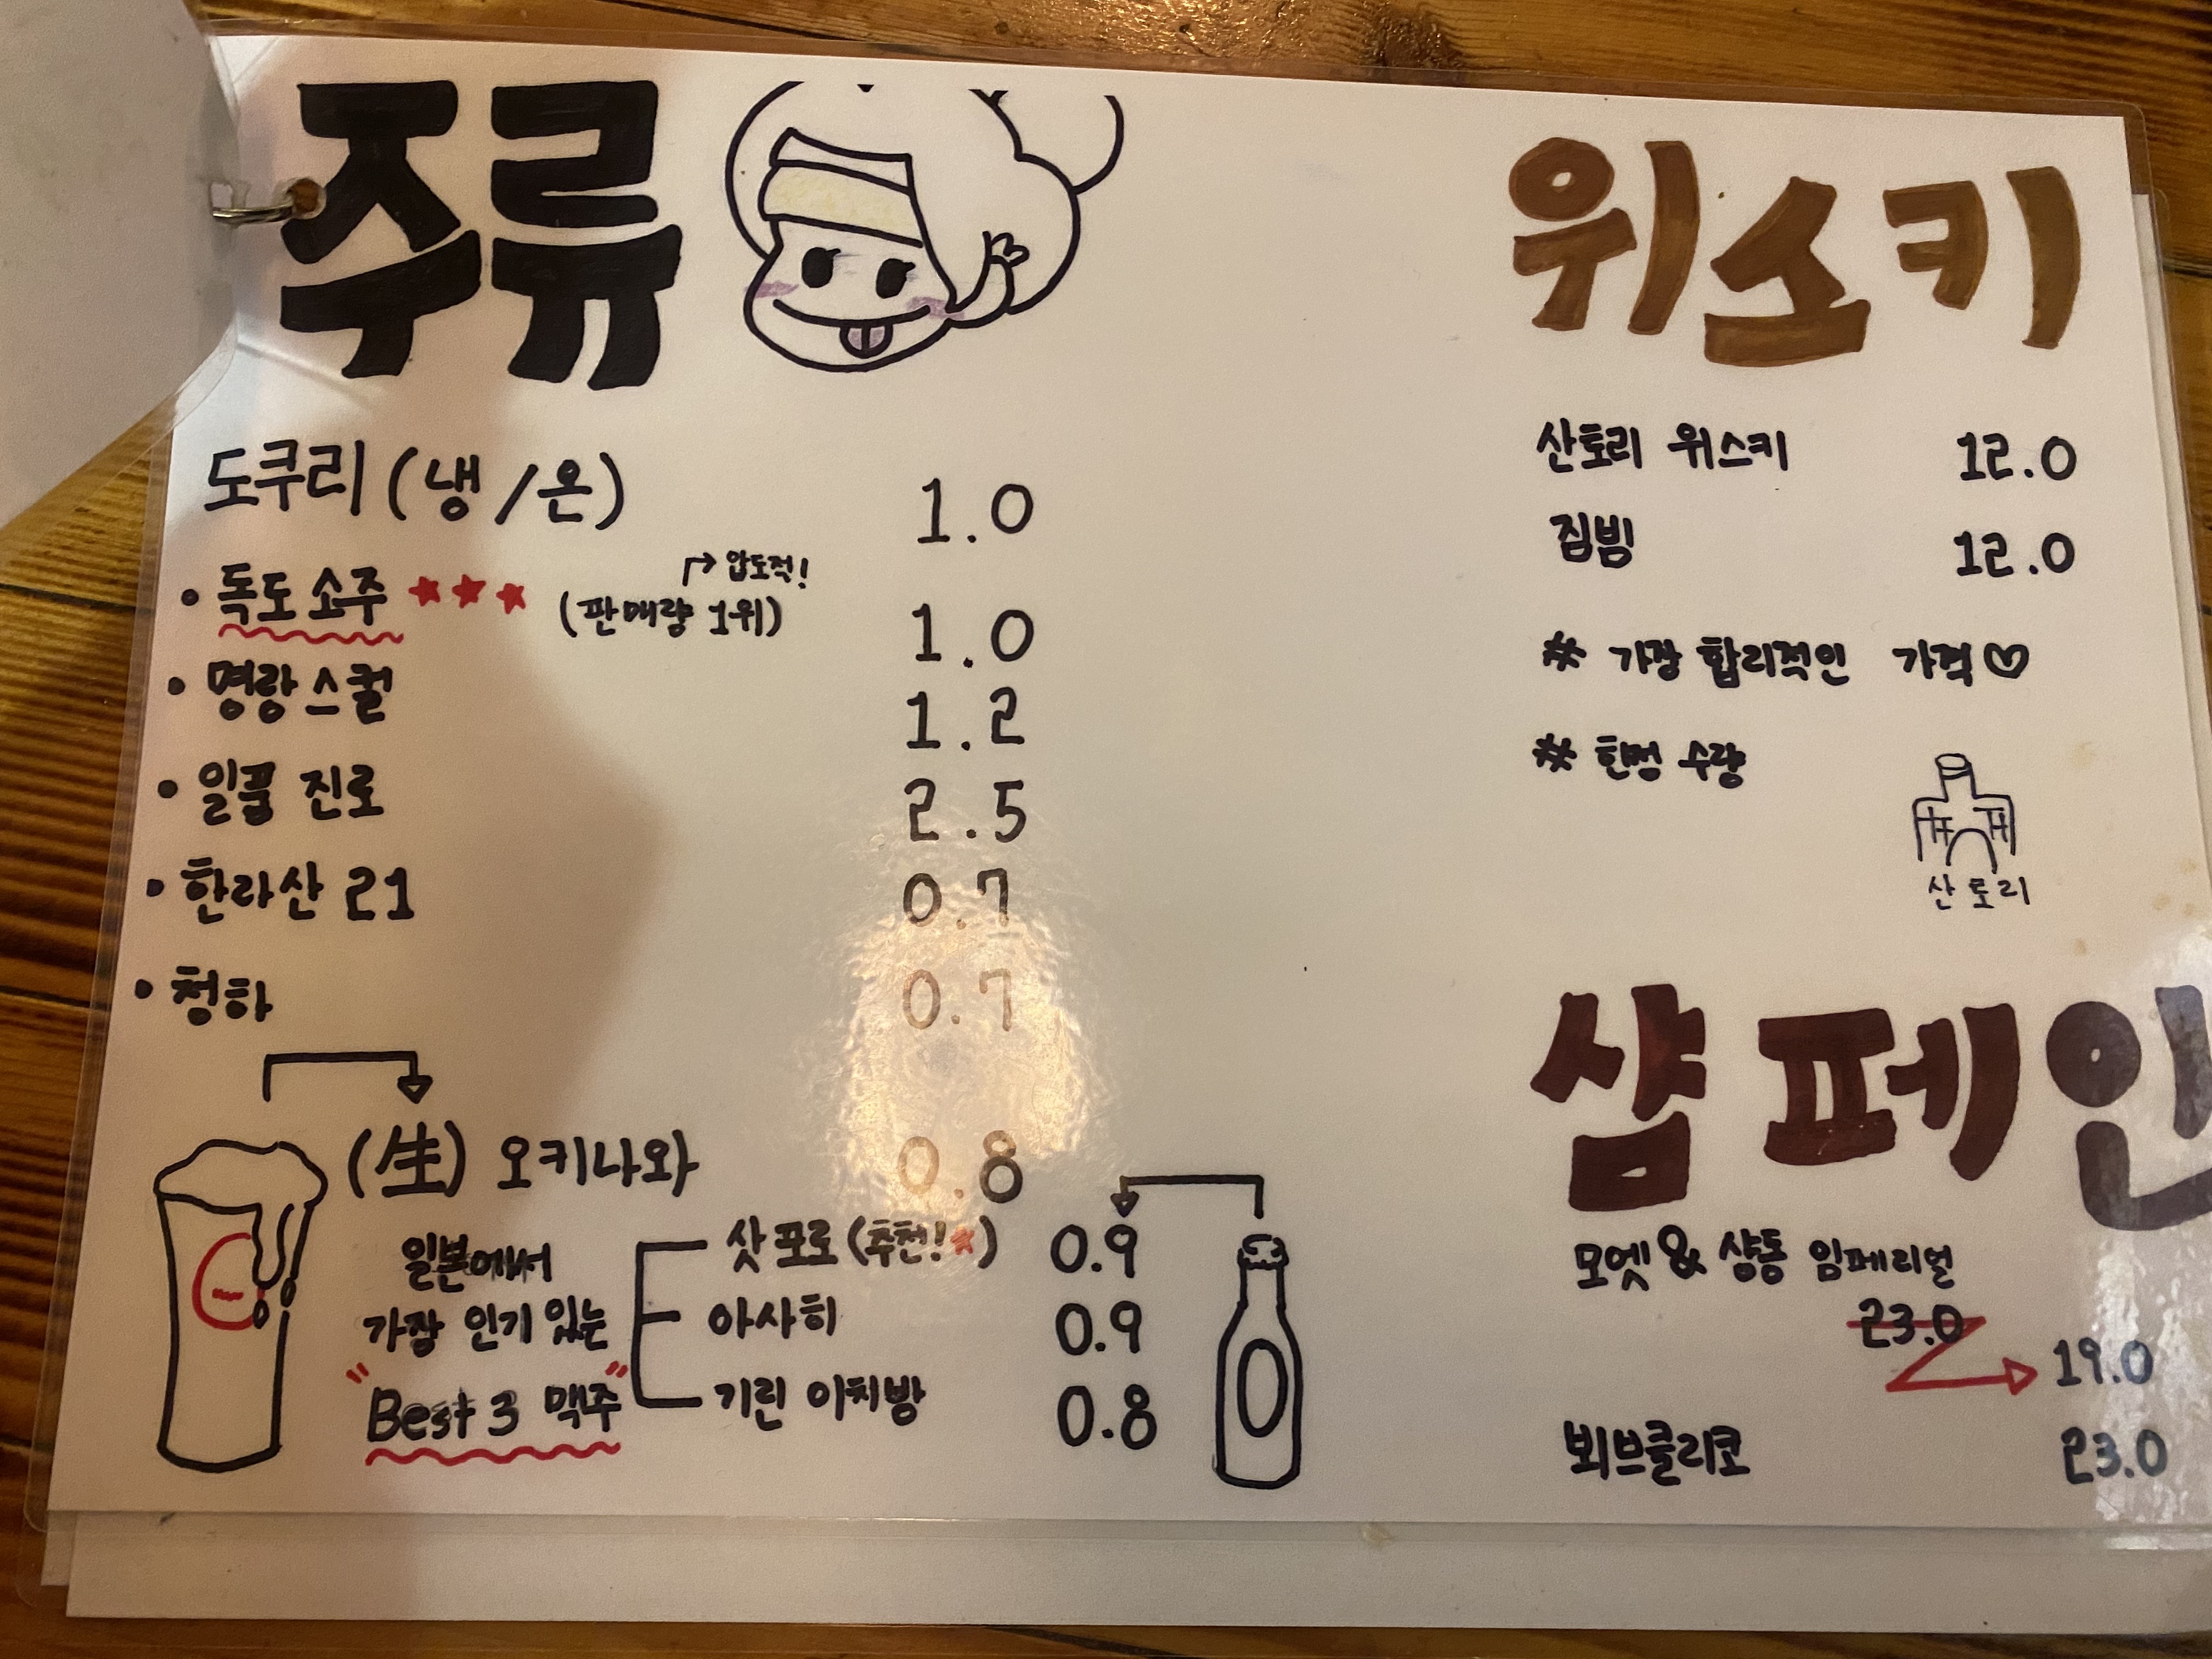 주류
도쿠리 (냉/온) 1.0
압도적!
• 독도소주 (판매량 1위) 1.0
• 명랑스컬 1.2
• 일품 진로 2.5
• 한라산 21 0.7
• 청하 0.7
(生) 오키나와 0.8
일본에서
가장 인기 있는
"Best 3 맥주"
삿포로 (추천!) 0.9
아사히 0.9
기린 이치방 0.8
위스키
산토리 위스키 12.0
짐빔 12.0
# 가장 합리적인 가격♡
# 한정 수량
산토리
샴페인
모엣 & 샹동 임페리얼
23.0
19.0
뵈브클리코 23.0